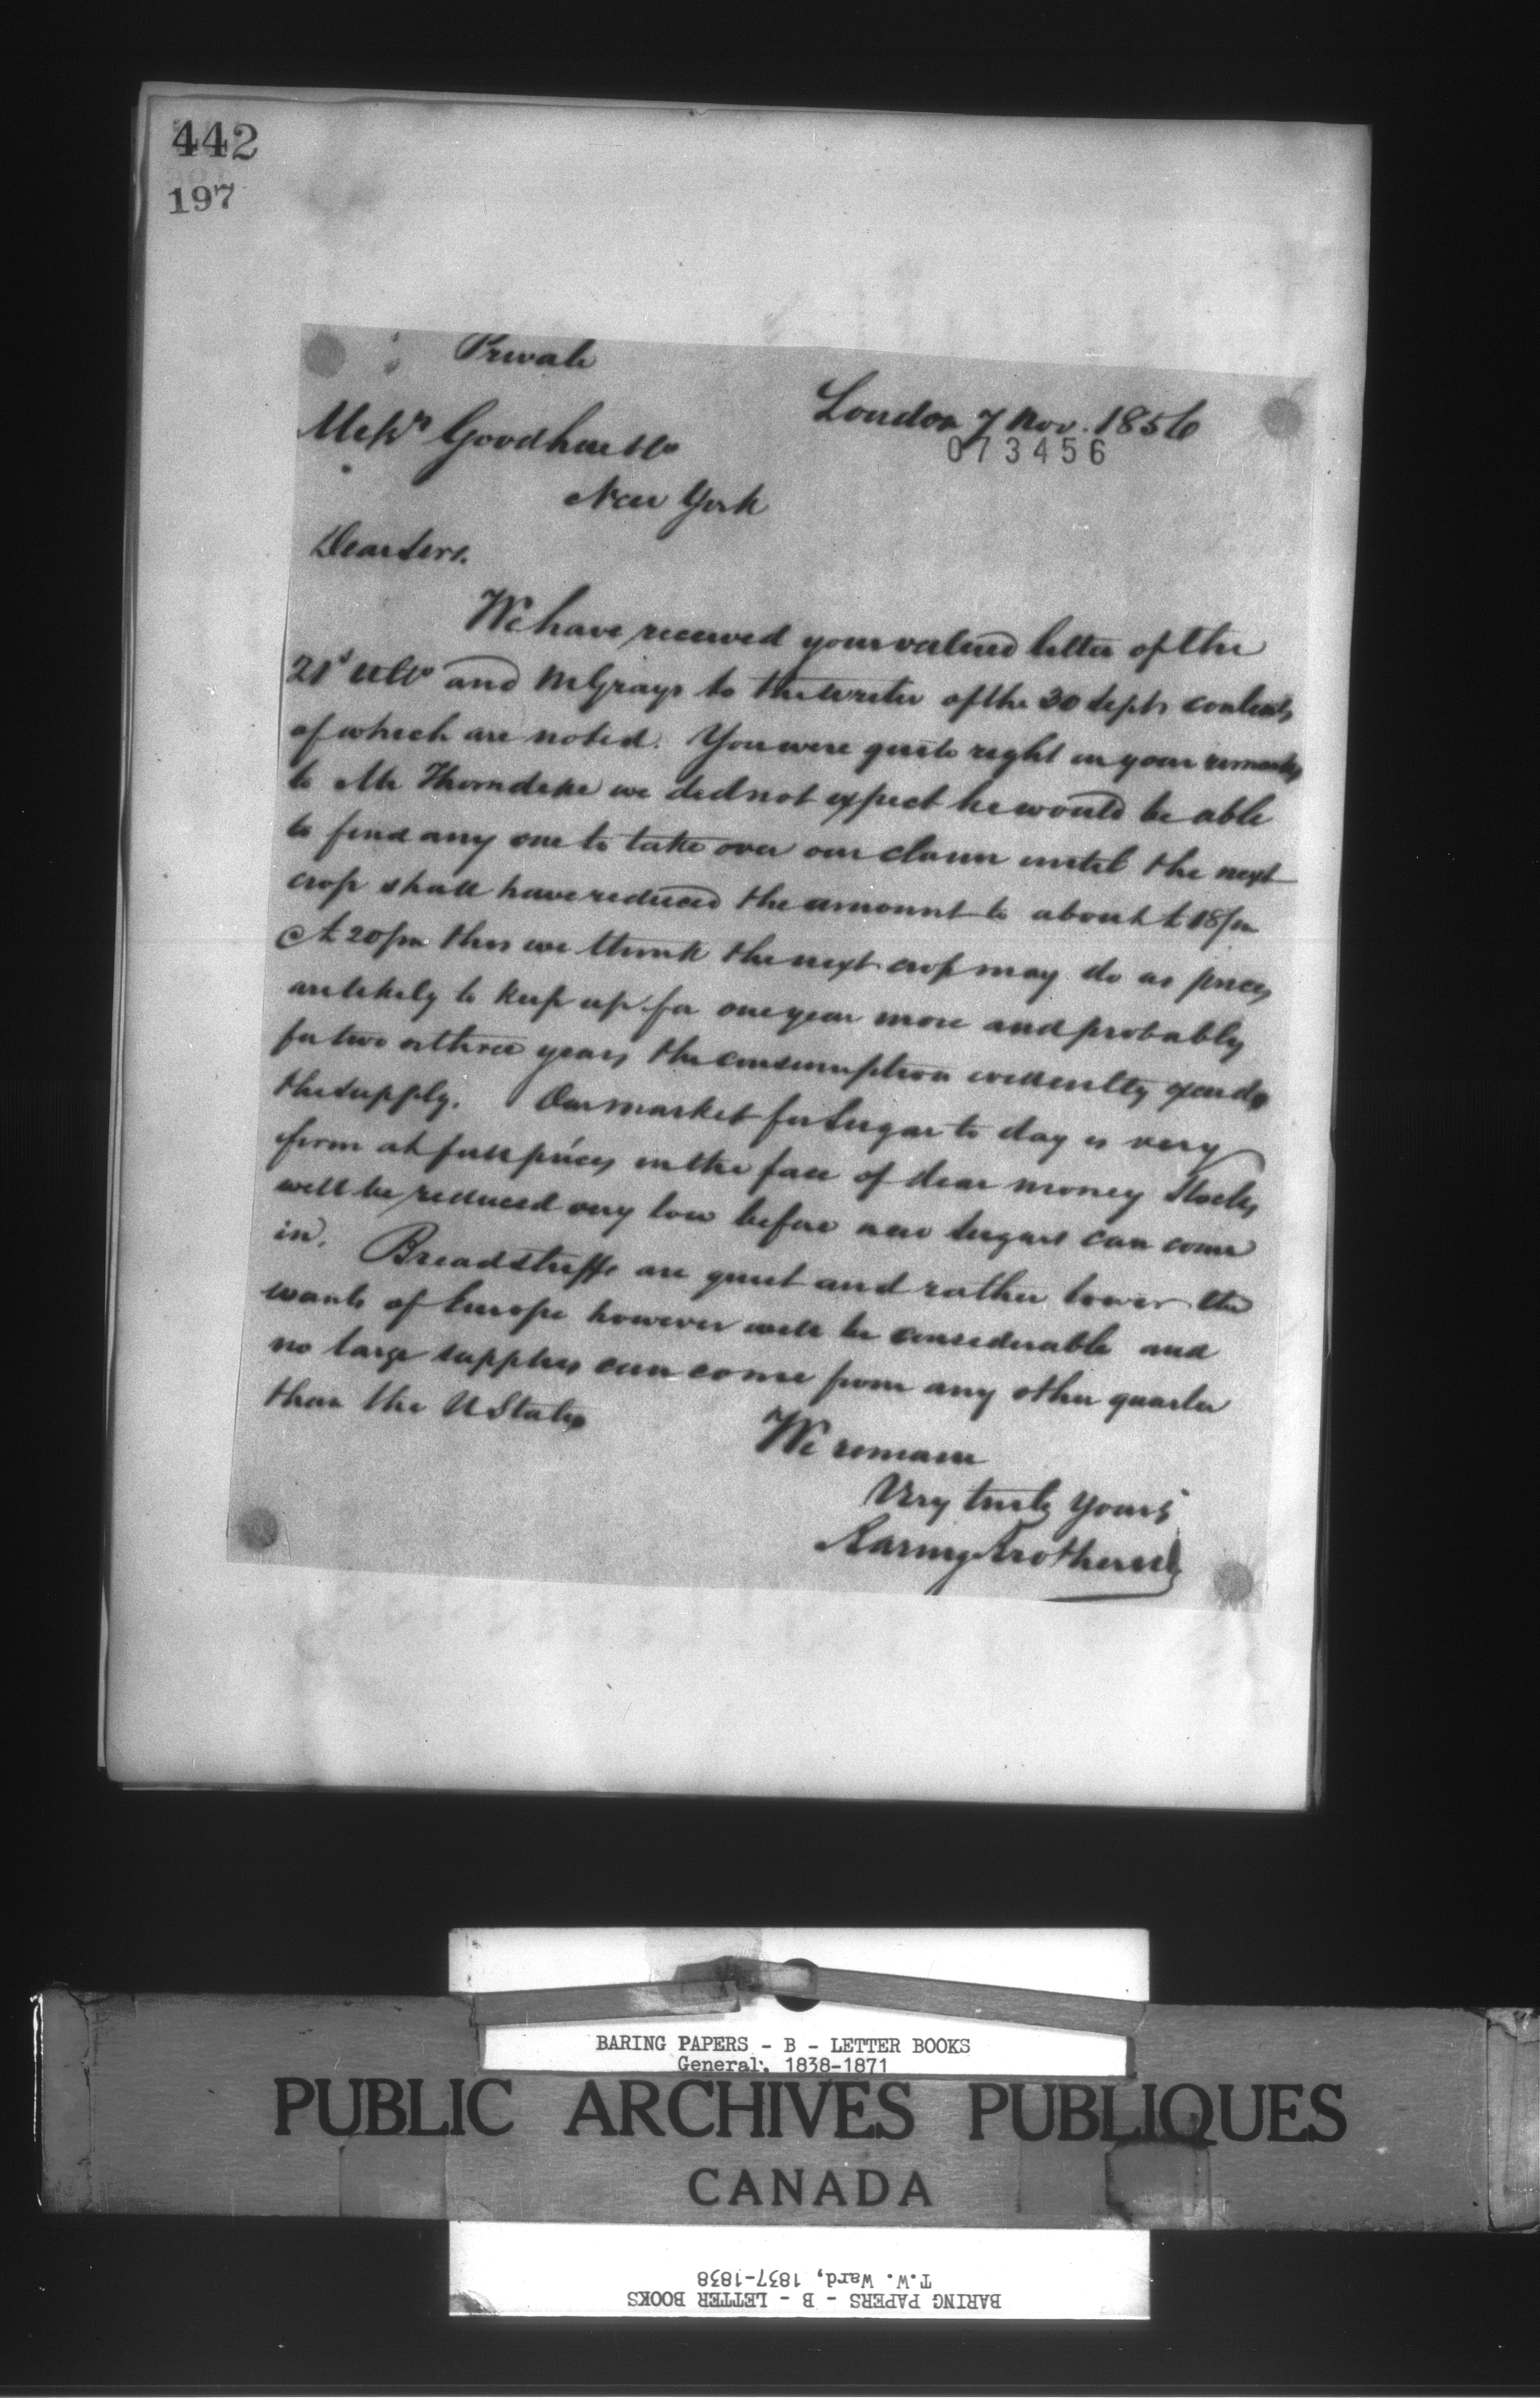 442
197
Private
London 7 Nov. 1856
073456
Messrs Goodhue & Co
New York
Dear Sirs.
We have received your valued letter of the
21st ulto and Mr Grays to the writer of the 30 Septr contents
of which are noted. You were quite right in your remarks
to Mr Thorndike we did not expect he would be able
to find any one to take over our claim until the next
crop shall have reduced the amount to about £ 18/m
@ £ 20/m this we think the next crop may do as prices
are likely to keep up for one year more and probably
for two or three years, the consumption evidently exceeds
the supply. Our market for Sugar to day is very
firm at full prices in the face of dear money Stocks
will be reduced very low before new Sugars can come
in. Breadstuffs are quiet and rather lower the
wants of Europe however will be considerable and
no large supplies can come from any other quarter
than the U States
We remain
Very truly Yours
Baring Brothers & Co
BARING PAPERS - B - LETTER BOOKS
General, 1838-1871
PUBLIC ARCHIVES PUBLIQUES
CANADA
T.W. Ward, 1837-1838
BARING PAPERS - B - LETTER BOOKS